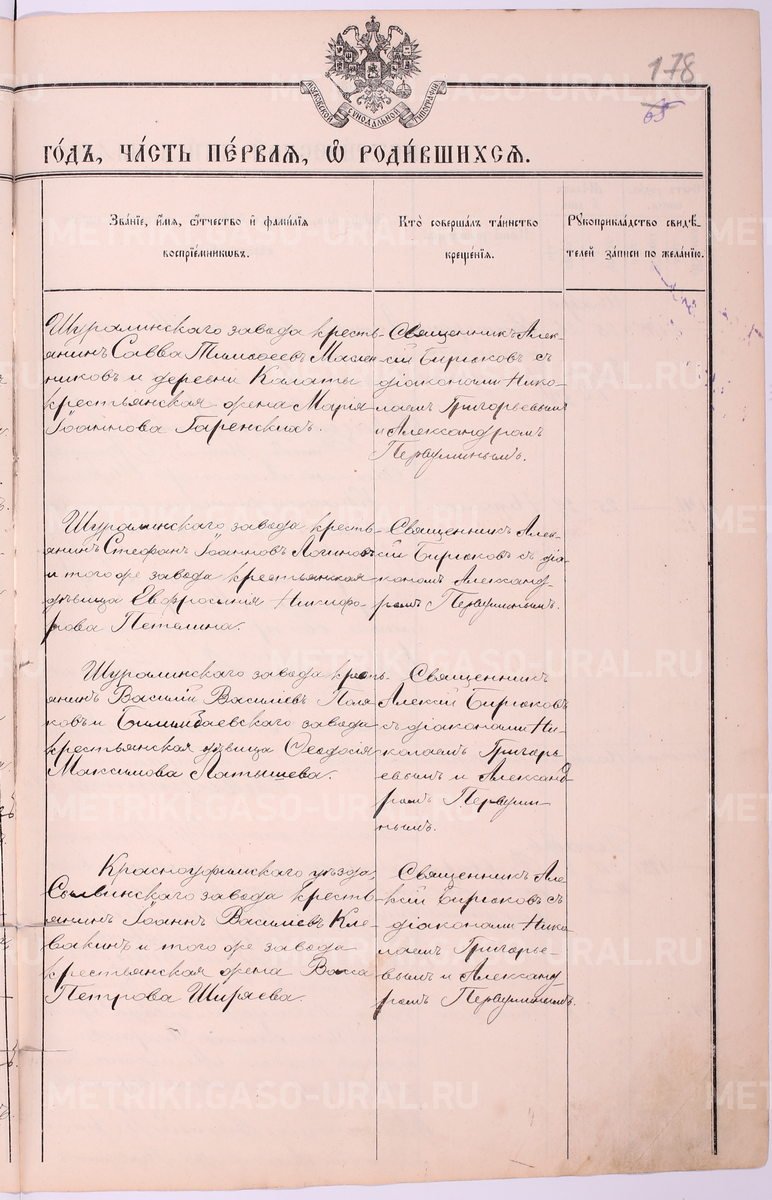 178
65
МОСКОВСКОЙ СѴНОДАЛЬНОЙ ТИПОГРАФІИ
ГО́ДЪ, ЧА́СТЬ ПЕ́РВАЯ, Ѡ҆ РОДИ́ВШИХСЯ.
Зва́нїе, и҆́мя, ѻ҆́тчество и҆ фами́лїя
воспрїе́мникѡвъ.
Кто̀ соверша́лъ та́инство
креще́нїя.
Рꙋкоприкла́дство свидѣ́-
телей за́писи по жела́нїю.
Шуралинскаго завода кресть-
янинъ Савва Тимофеевъ Маслен-
никовъ и деревни Калаты
крестьянская жена Марія
Іоаннова Гаренскихъ.
Священникъ Алек-
сій Бирюковъ съ
діаконами Нико-
лаемъ Григорьевымъ
и Александромъ
Первушинымъ.
Шуралинскаго завода кресть-
янинъ Стефанъ Іоанновъ Логиновъ
и того же завода крестьянская
дѣвица Евфросинія Никифо
рова Петелина.
Священникъ Алек-
сій Бирюковъ съ діа-
кономъ Александ-
ромъ Первушинымъ.
Шуралинскаго завода кресть-
янинъ Василій Василіевъ Поля
ковъ и Билимбаевскаго завода
крестьянская дѣвица Ѳеодосія
Максимова Латышева.
Священникъ
Алексій Бирюковъ
съ діаконами Ни-
колаемъ Григорь
евымъ и Александ
ромъ Первуши
нымъ.
Красноуфимскаго уѣзда,
Сылвинскаго завода кресть-
янинъ Іоаннъ Василіевъ Кле-
вакинъ и того же завода
крестьянская жена Васса
Петрова Ширяева.
Священникъ Але
ксій Бирюковъ съ
діаконами Нико
лаемъ Григорье-
вымъ и Александ-
ромъ Первушинымъ.
METRIKI.GASO-URAL.RU